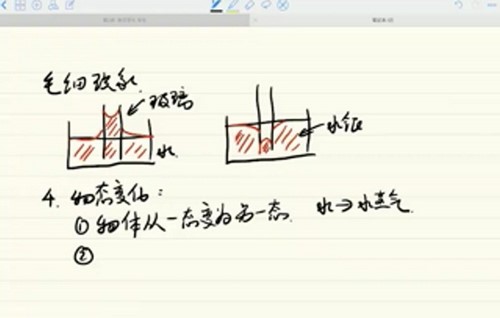 毛细现象
玻璃
水
水银
4. 物态变化:
① 物体从一态变为另一态. 水→水蒸气.
②